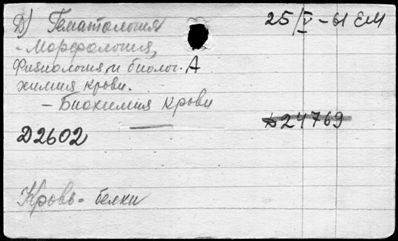 Д) Гематология 25/V-61 ЕМ
- Морфология,
физиология и биолог. А
химия крови.
- Биохимия крови
Д24769
Д2602
Кровь - белки